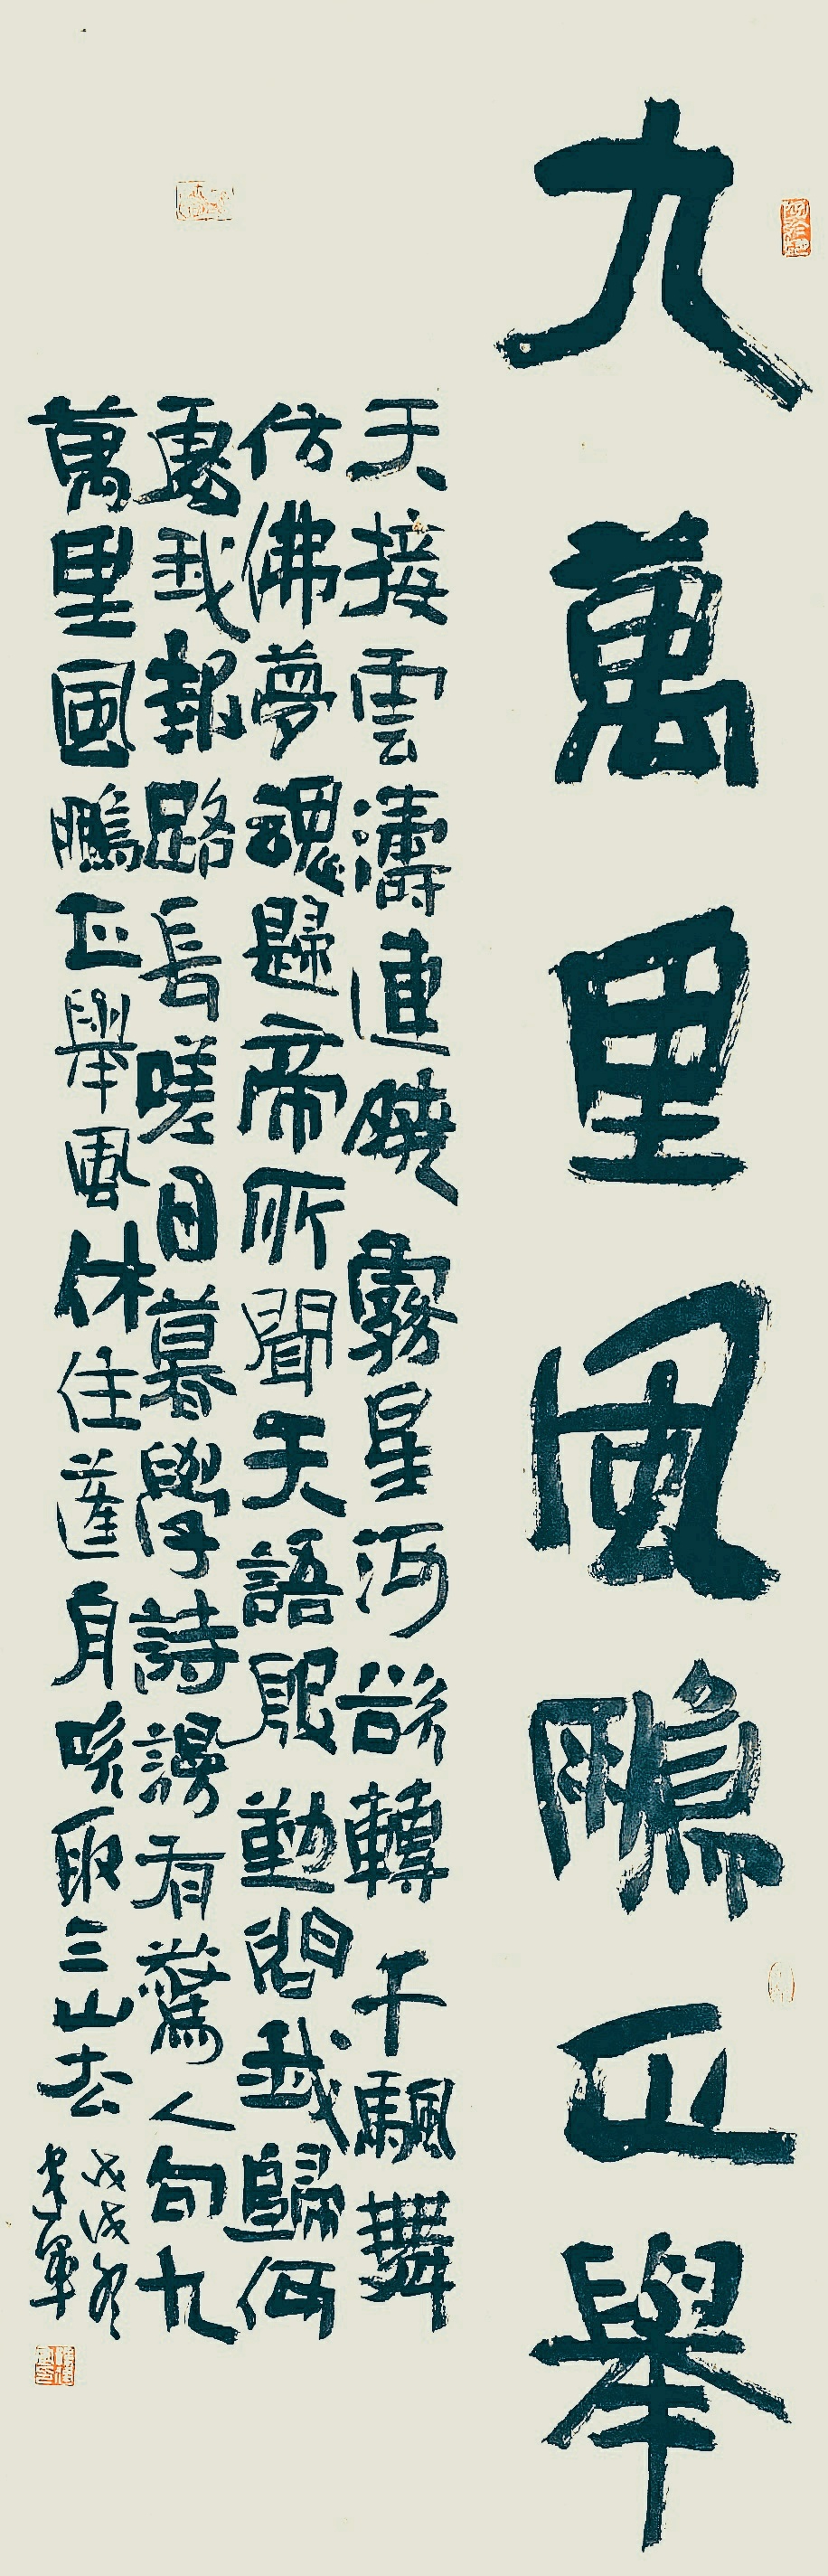 九萬里風鵬正舉
天接雲濤連曉霧星河欲轉千颿舞
仿佛夢魂歸帝所聞天語殷勤問我歸何
處我報路長嗟日暮學詩謾有驚人句九
萬里風鵬正舉風休住蓬舟吹取三山去
戊戌冬
建軍